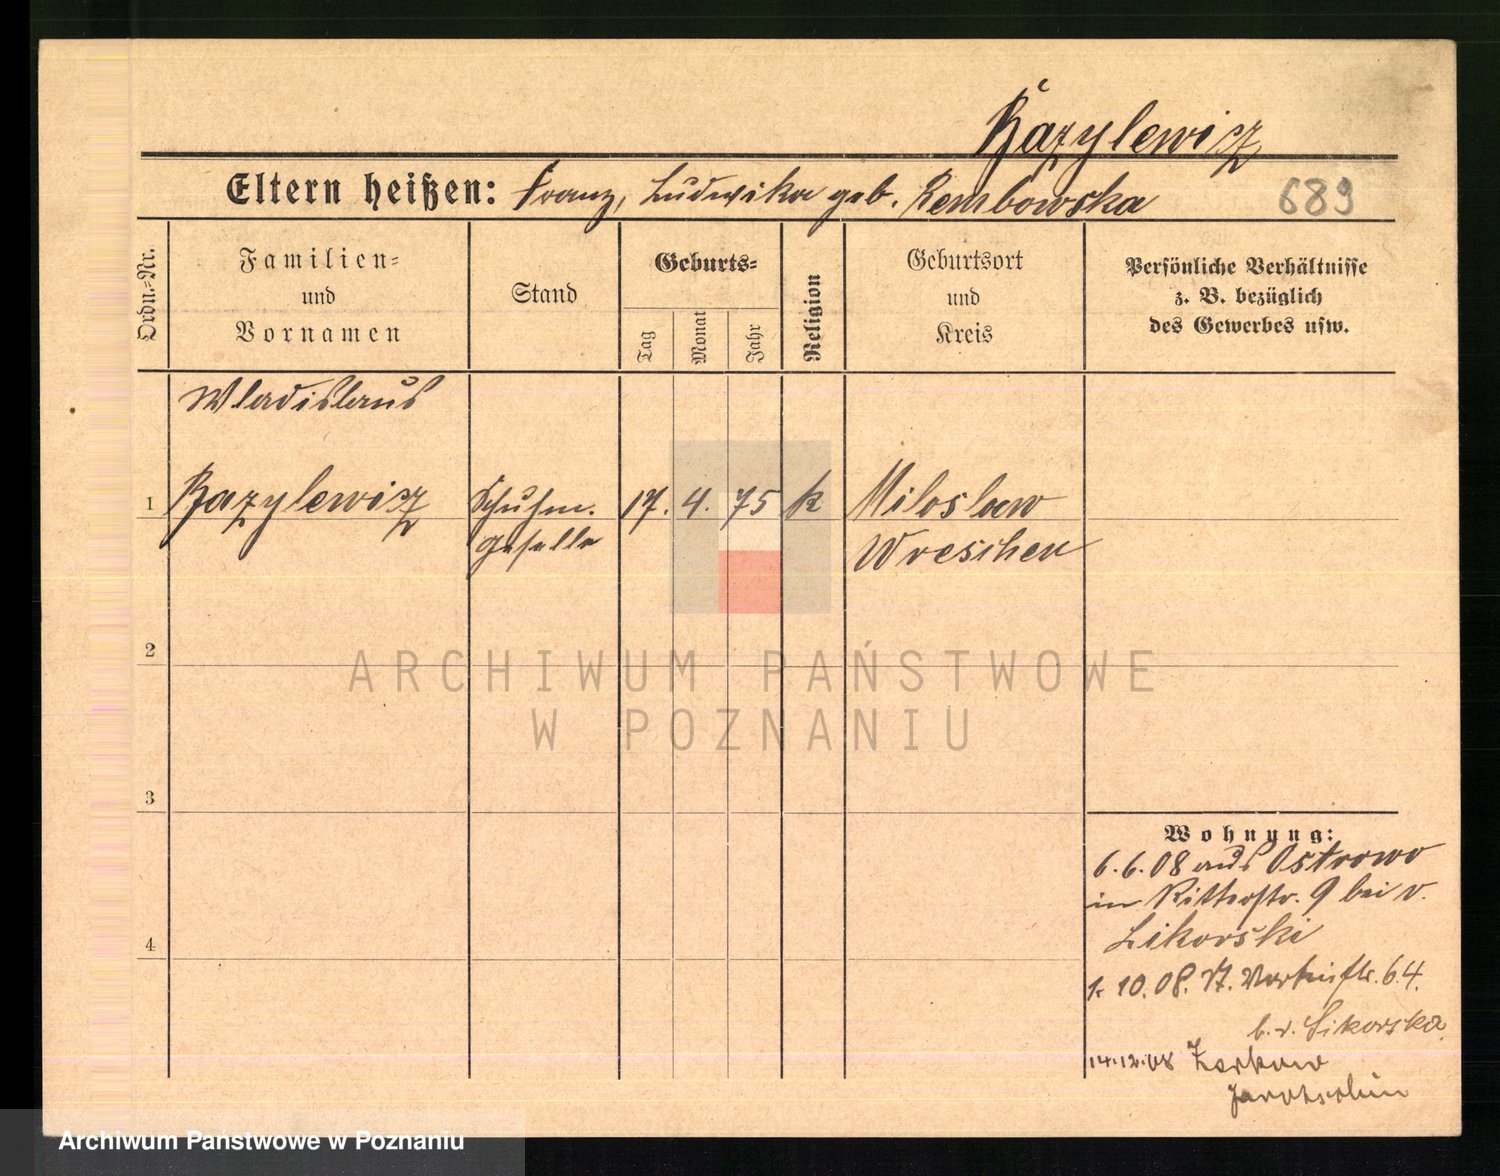 Bazylewicz
Eltern heißen: Franz, Ludwika geb. Rembowska
689
Ordn.-Nr.
Familien-
und
Vornamen
Stand
Geburts-
Tag
Monat
Jahr
Religion
Geburtsort
und
Kreis
Persönliche Verhältnisse
z. B. bezüglich
des Gewerbes usw.
Wladislaus
1 Bazylewicz Schuhm. 17. 4. 75 k Miloslaw
geselle Wreschen
2
ARCHIWUM PAŃSTWOWE
W POZNANIU
3
Wohnung:
6.6.08 aus Ostrowo
in Ritterstr. 9 bei v.
Likorski
4
1. 10. 08. 64.
b. v. Sikorska
14.12.08 Zerkow
Jarotschin
Archiwum Państwowe w Poznaniu